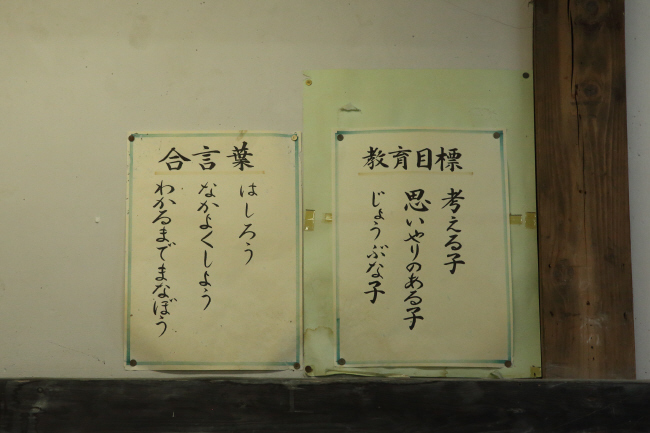 教育目標
考える子
思いやりのある子
じょうぶな子
合言葉
はしろう
なかよくしよう
わかるまでまなぼう